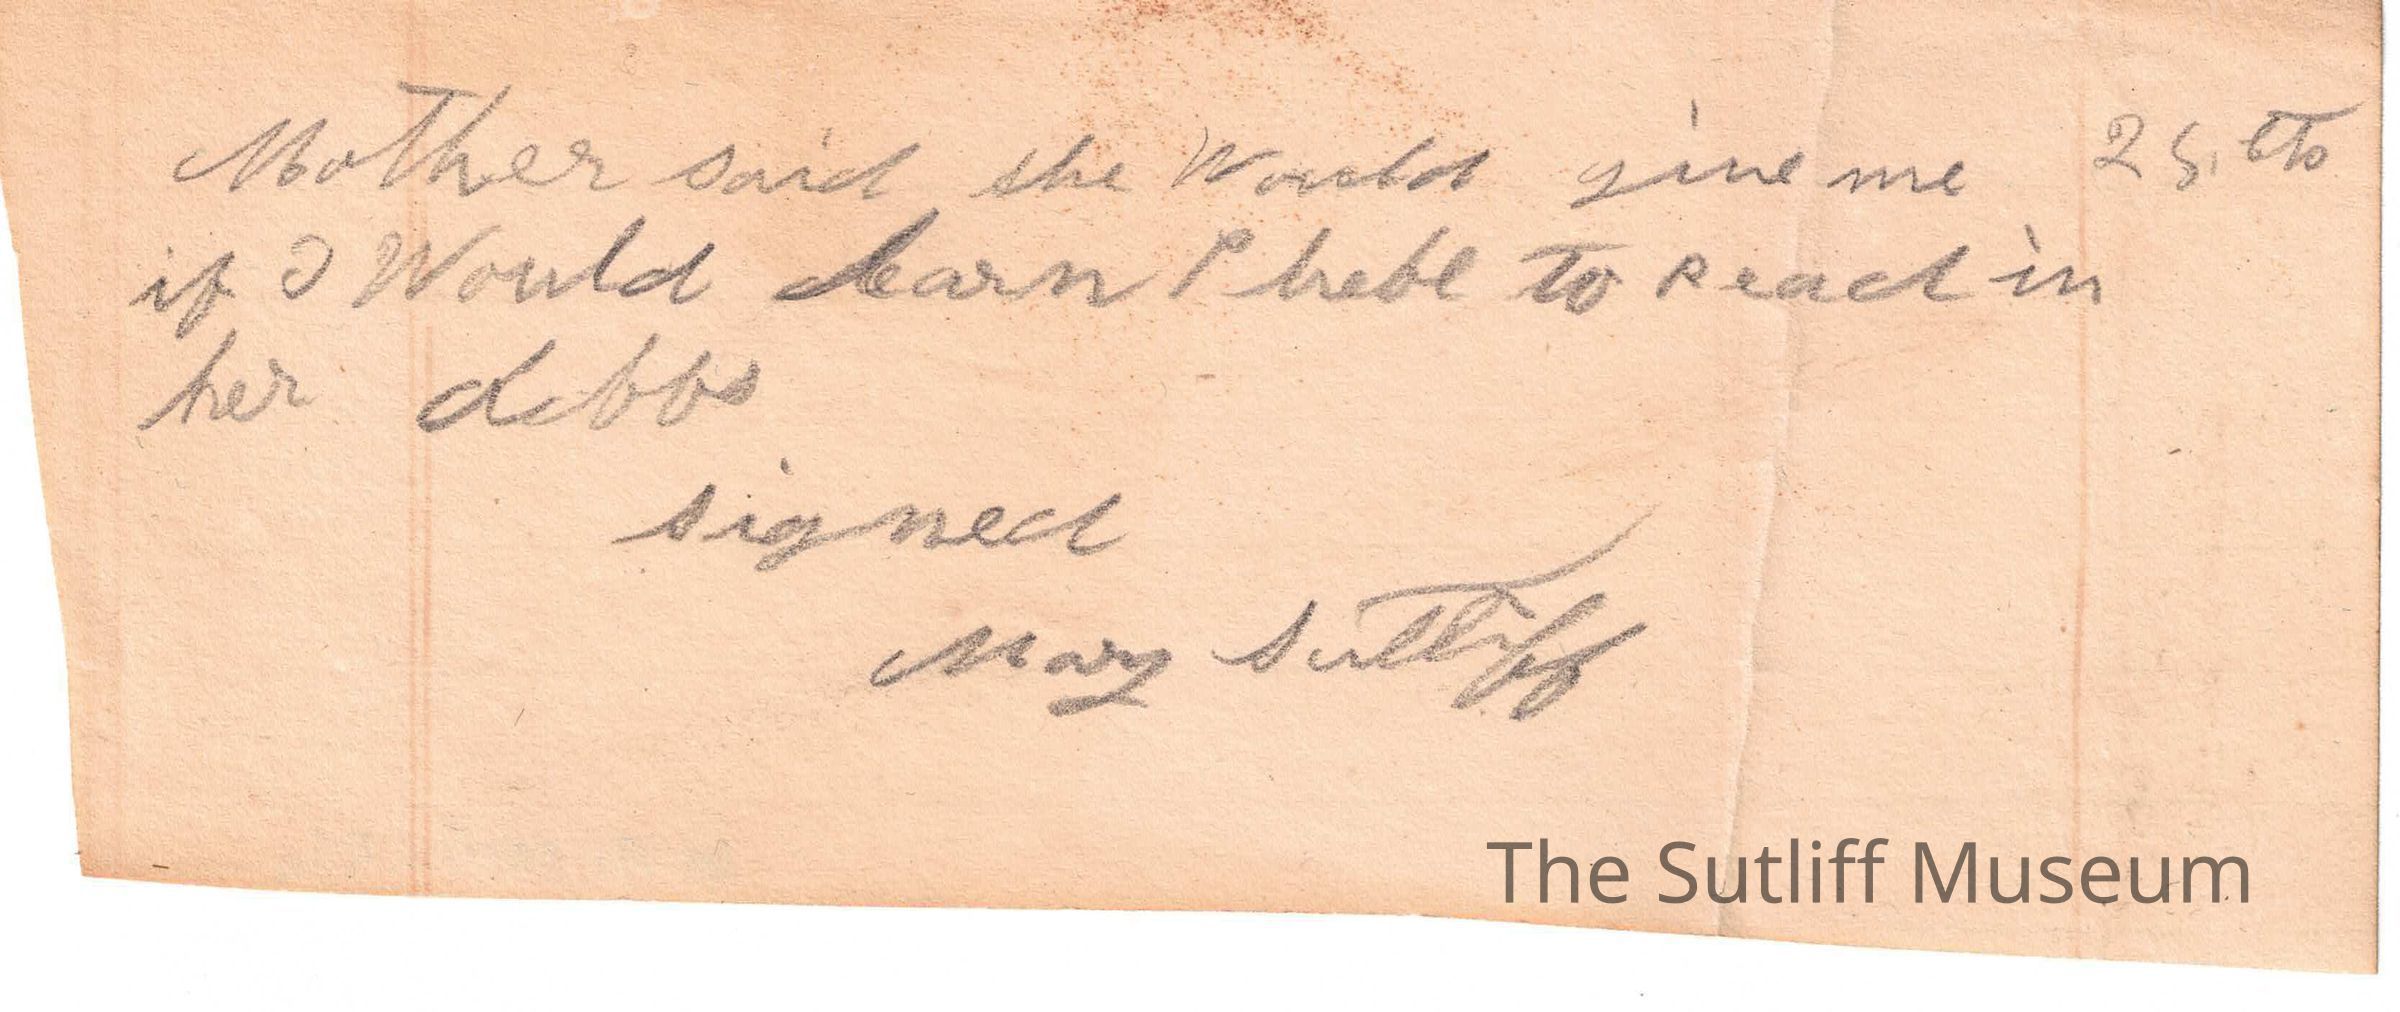 Mother said she Would give me 25 cts
if I Would learn Phebe to Read in
her debbs
signed
Mary Sutliff
The Sutliff Museum